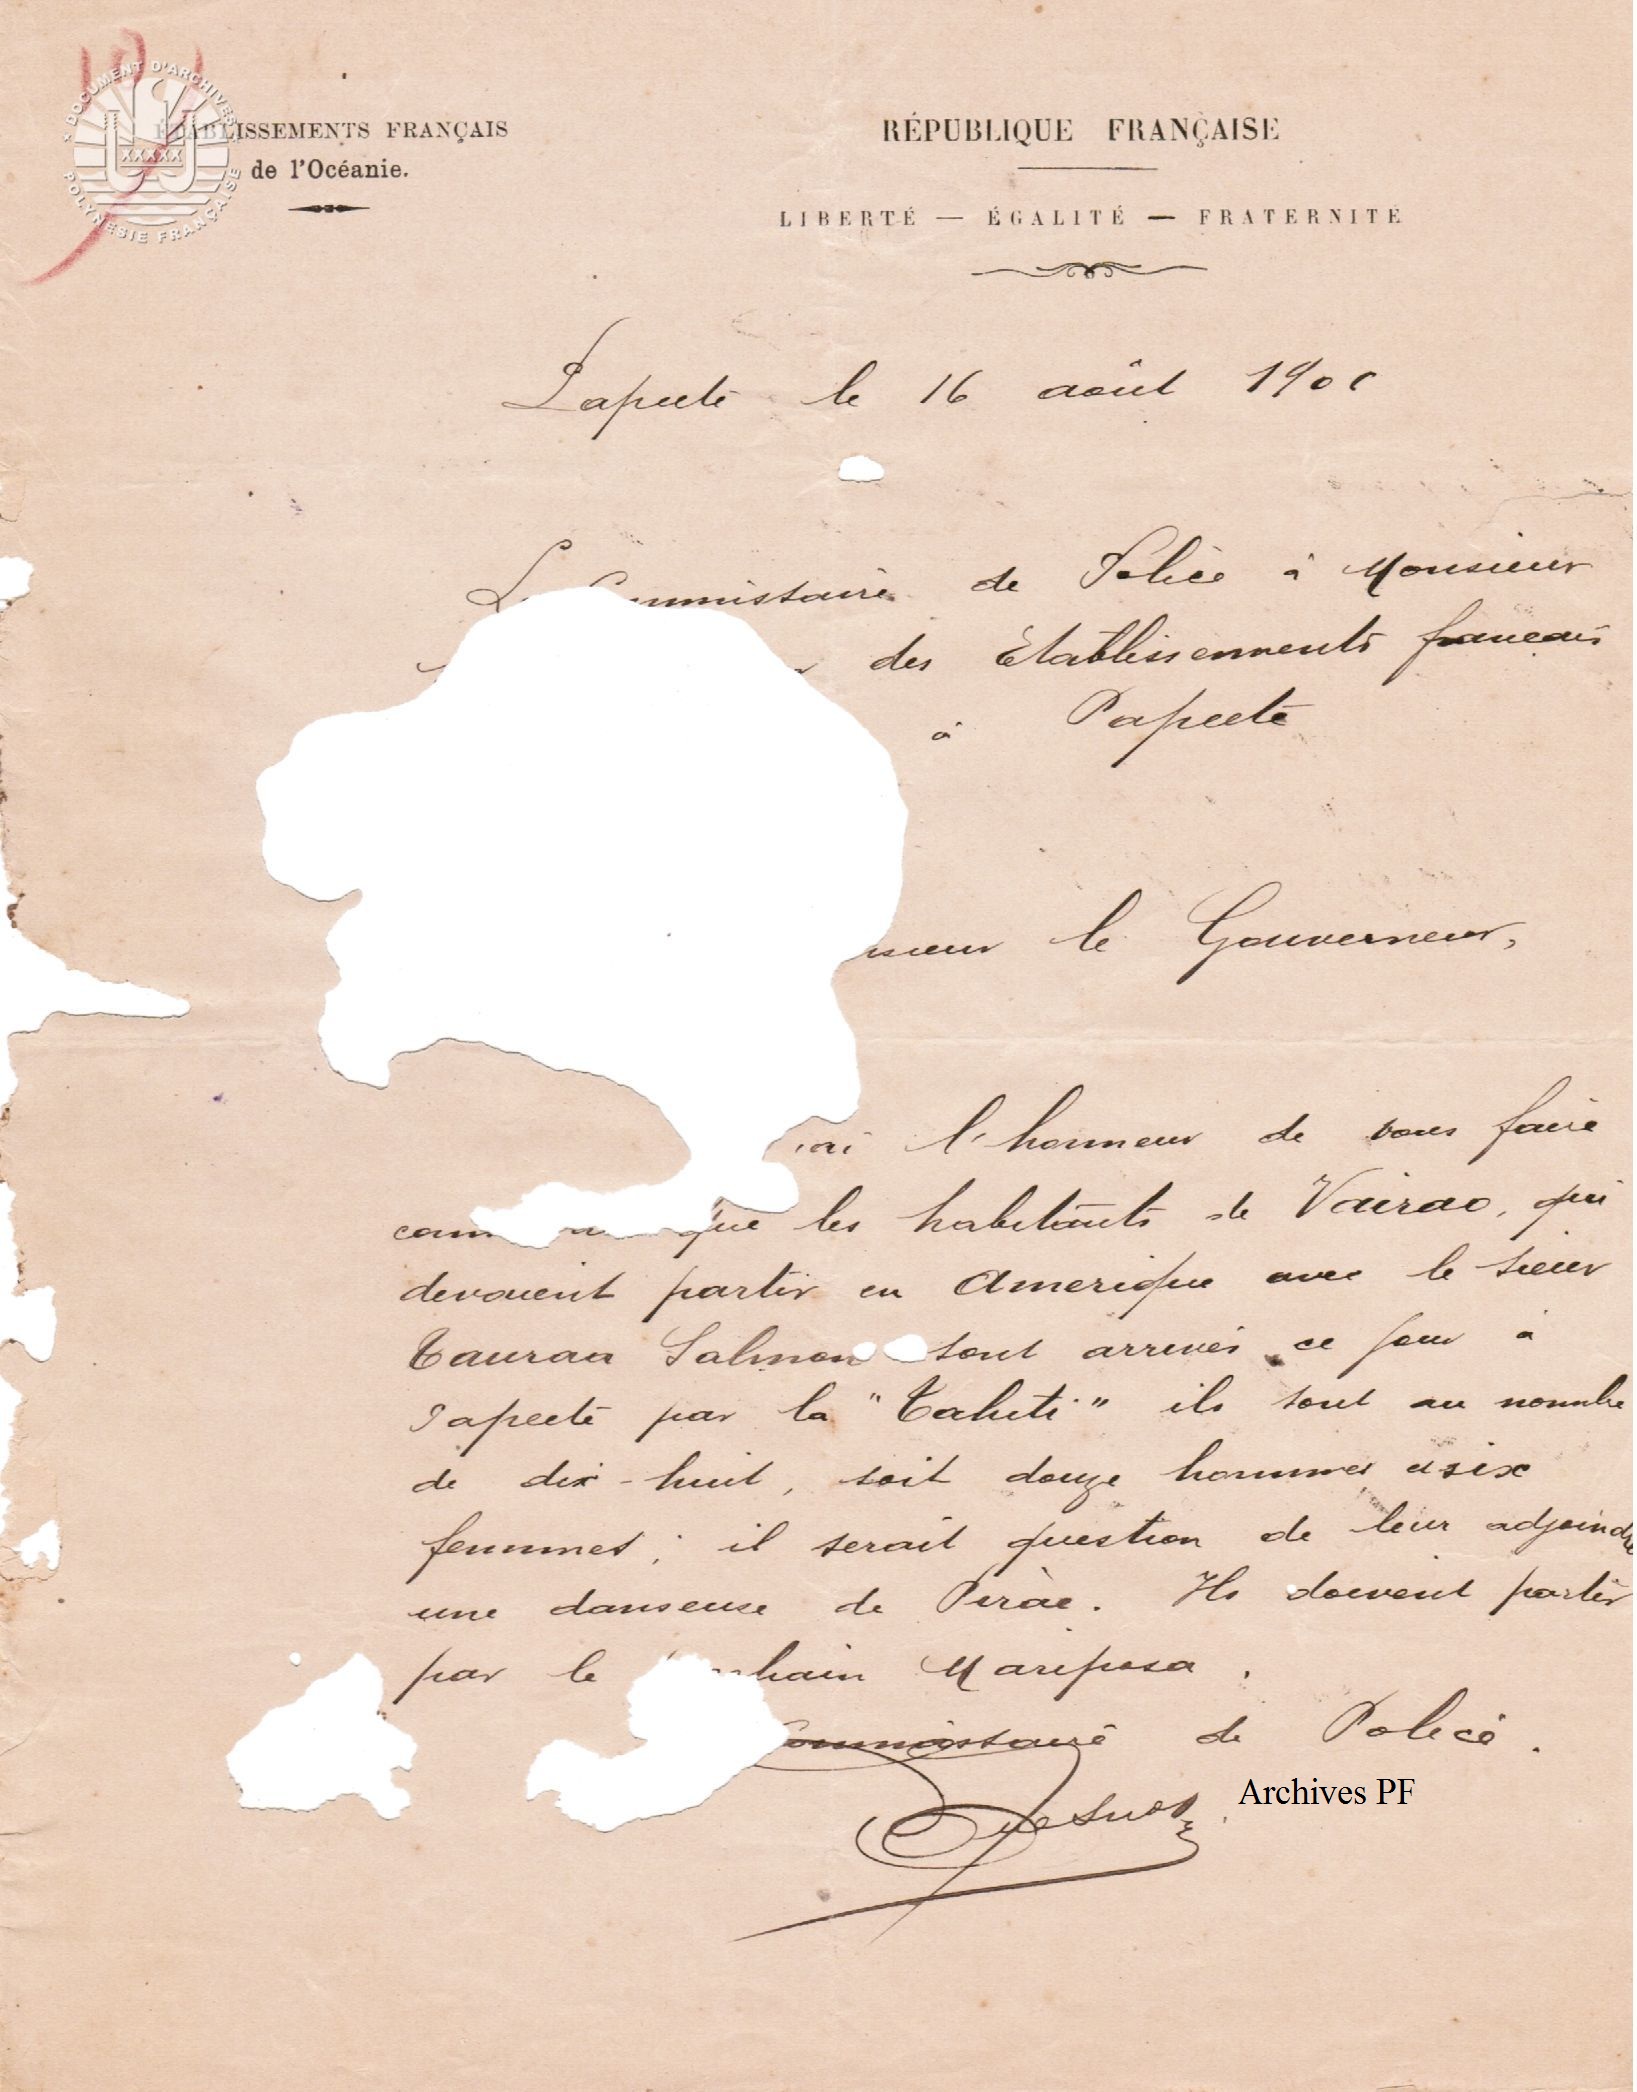 DOCUMENT D'ARCHIVES
POLYNESIE FRANÇAISE
ÉTABLISSEMENTS FRANÇAIS
de l'Océanie.
RÉPUBLIQUE FRANÇAISE
LIBERTÉ — ÉGALITÉ — FRATERNITÉ
Papeete le 16 août
Commissaire de Police à Monsieur
des Etablissements français
à Papeete
le Gouverneur,
l'honneur de vous faire
que les habitants de Vairao, qui
devaient partir en Amerique avec le sieur
Tauraa Salmon sont arrivés ce jour à
Papeete par la "Tahiti" ils sont au nombre
de dix-huit, soit douze hommes et six
femmes; il serait question de leur adjoindre
une danseuse de Pirae. Ils doivent partir
par le Mariposa.
Commissaire de Police.
Archives PF